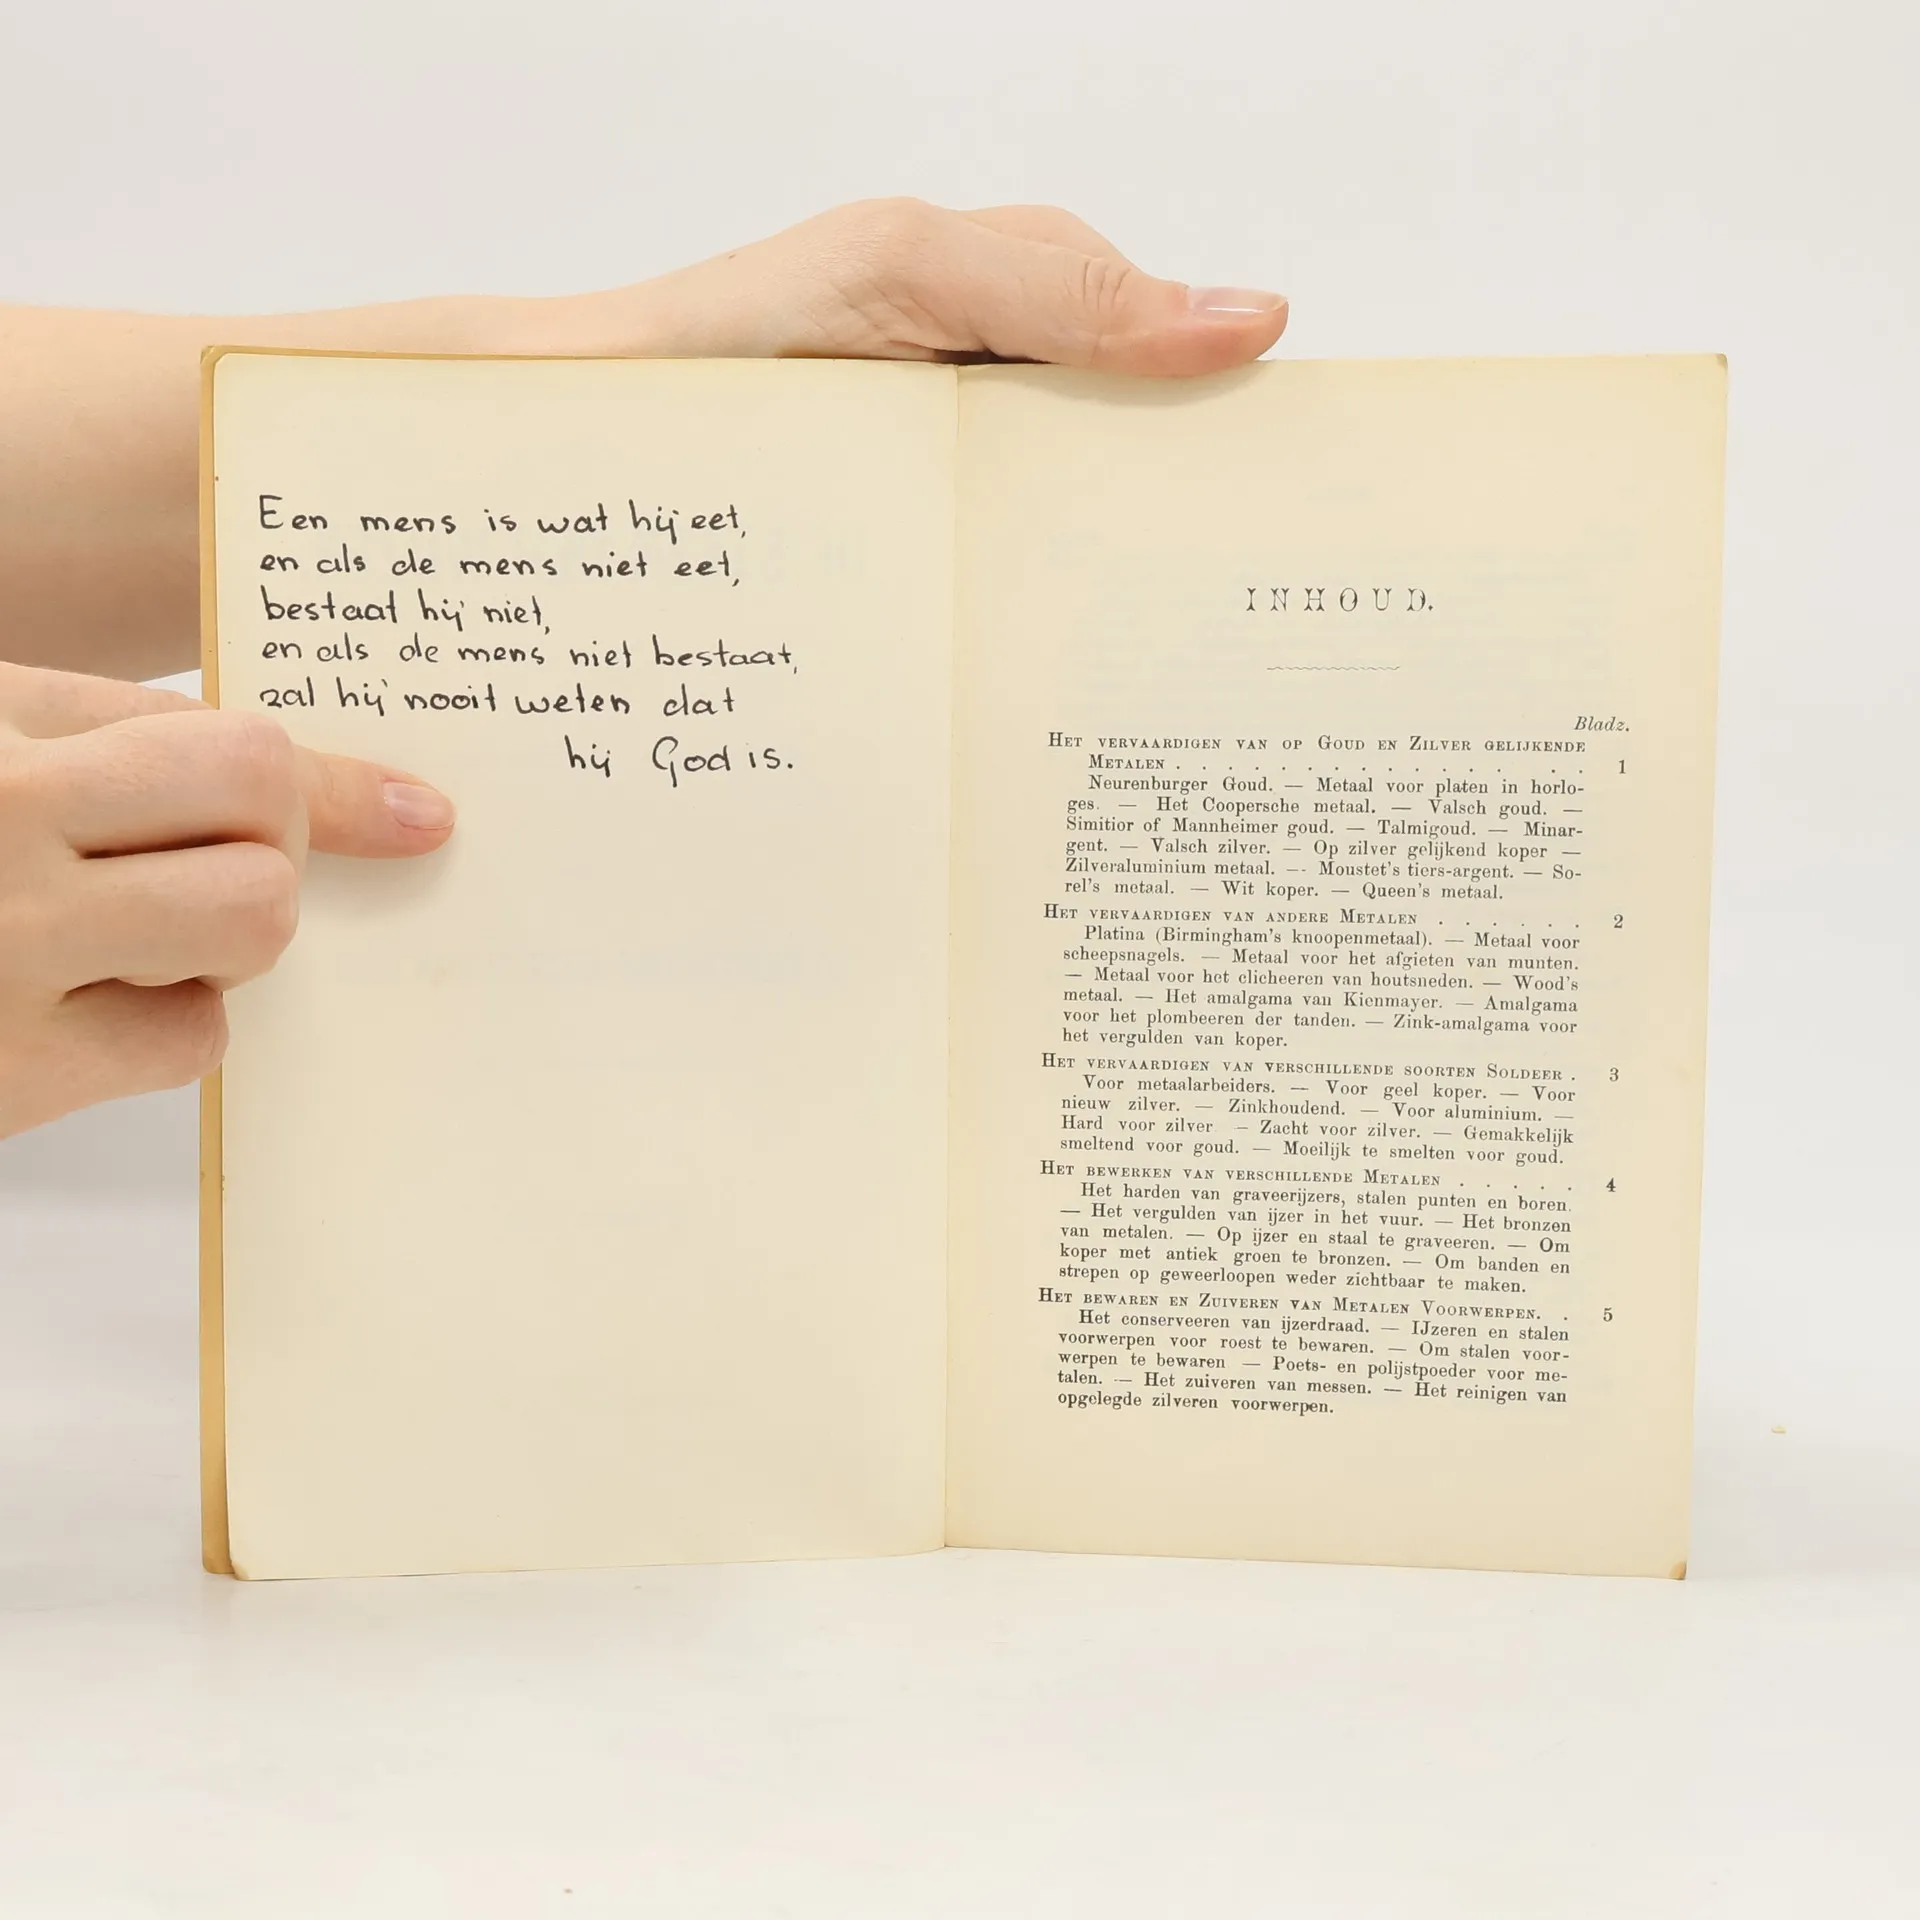 Een mens is wat hij eet,
en als de mens niet eet,
bestaat hij niet,
en als de mens niet bestaat,
zal hij nooit weten dat
hij God is.
INHOUD.
Bladz.
HET VERVAARDIGEN VAN OP GOUD EN ZILVER GELIJKENDE
METALEN . . . . . . . . . . . . . . . 1
Neurenburger Goud. — Metaal voor platen in horlo-
ges. — Het Coopersche metaal. — Valsch goud. —
Simitior of Mannheimer goud. — Talmigoud. — Minar-
gent. — Valsch zilver. — Op zilver gelijkend koper —
Zilveraluminium metaal. — Moustet's tiers-argent. — So-
rel's metaal. — Wit koper. — Queen's metaal.
HET VERVAARDIGEN VAN ANDERE METALEN . . . . . . 2
Platina (Birmingham's knoopenmetaal). — Metaal voor
scheepsnagels. — Metaal voor het afgieten van munten.
— Metaal voor het clicheeren van houtsneden. — Wood's
metaal. — Het amalgama van Kienmayer. — Amalgama
voor het plombeeren der tanden. — Zink-amalgama voor
het vergulden van koper.
HET VERVAARDIGEN VAN VERSCHILLENDE SOORTEN SOLDEER . 3
Voor metaalarbeiders. — Voor geel koper. — Voor
nieuw zilver. — Zinkhoudend. — Voor aluminium. —
Hard voor zilver — Zacht voor zilver. — Gemakkelijk
smeltend voor goud. — Moeilijk te smelten voor goud.
HET BEWERKEN VAN VERSCHILLENDE METALEN . . . . . 4
Het harden van graveerijzers, stalen punten en boren.
— Het vergulden van ijzer in het vuur. — Het bronzen
van metalen. — Op ijzer en staal te graveeren. — Om
koper met antiek groen te bronzen. — Om banden en
strepen op geweerloopen weder zichtbaar te maken.
HET BEWAREN EN ZUIVEREN VAN METALEN VOORWERPEN. . 5
Het conserveeren van ijzerdraad. — IJzeren en stalen
voorwerpen voor roest te bewaren. — Om stalen voor-
werpen te bewaren — Poets- en polijstpoeder voor me-
talen. — Het zuiveren van messen. — Het reinigen van
opgelegde zilveren voorwerpen.